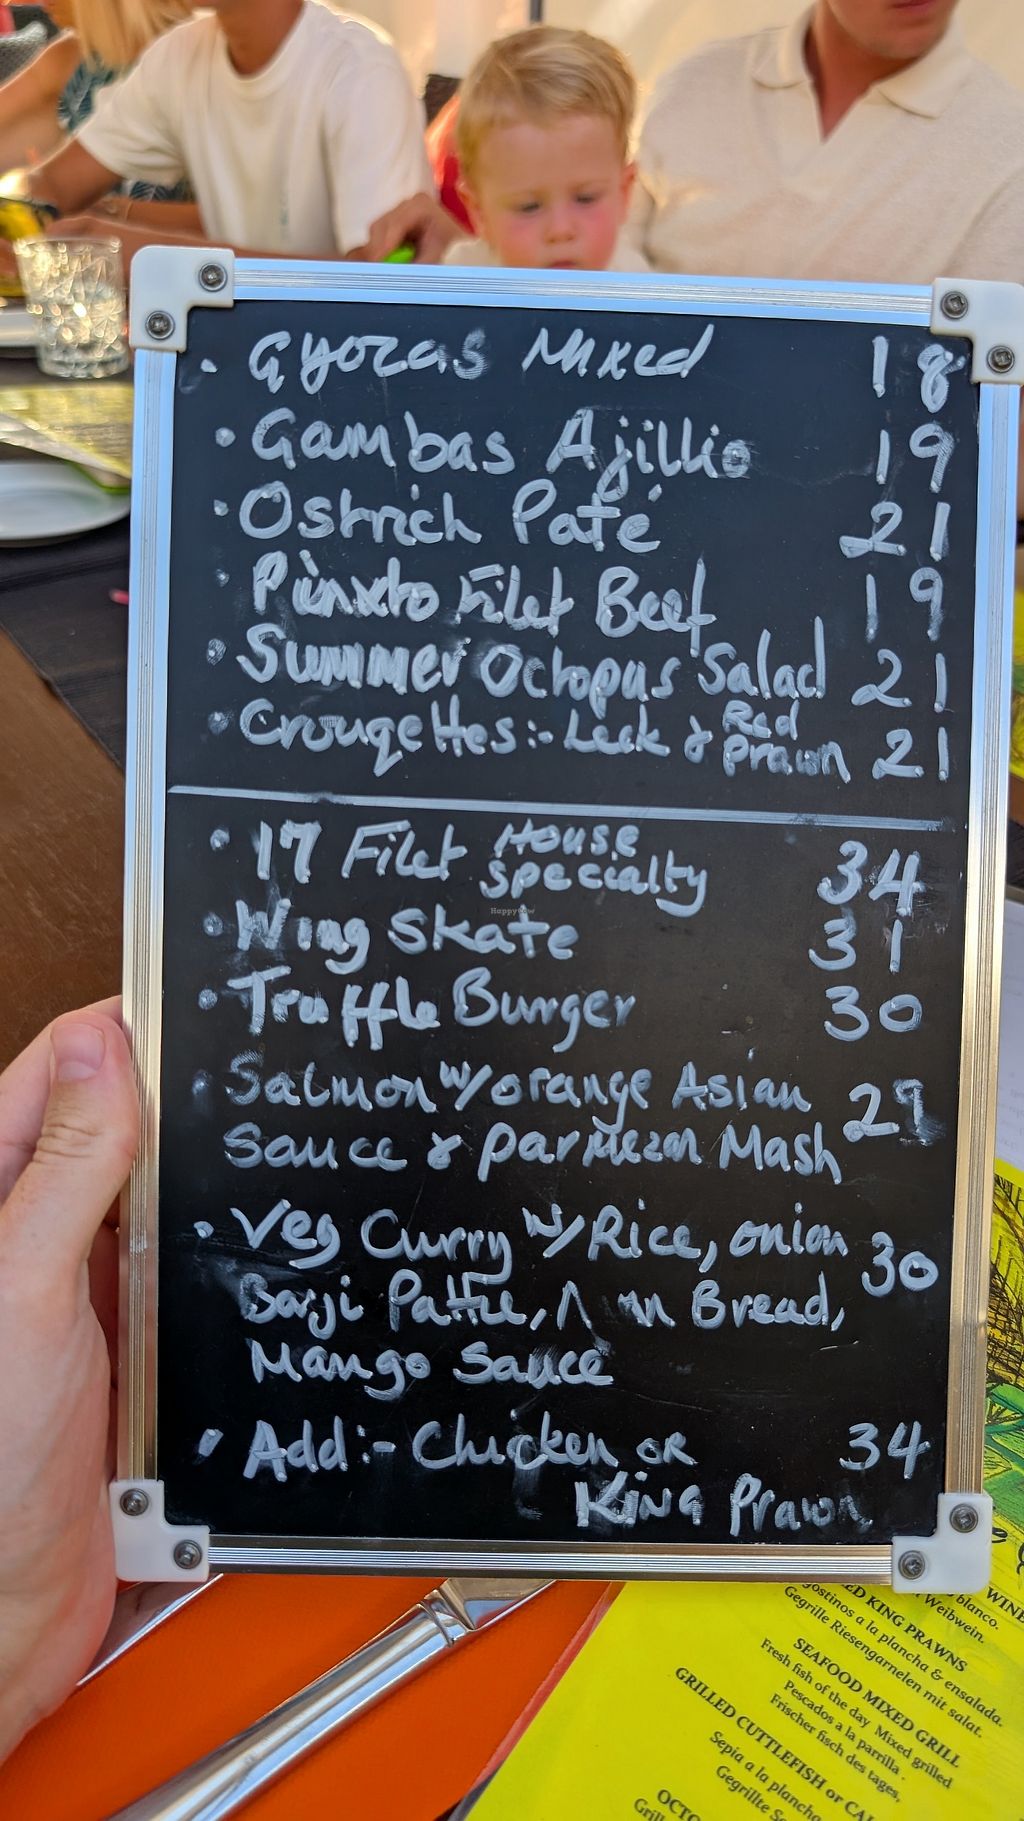 • Gyozas Mixed 18
• Gambas Ajillio 19
• Ostrich Paté 21
• Pinxto Filet Beef 19
• Summer Octopus Salad 21
• Crouqettes:- Leek & Red Prawn 21
• 17 Filet House Specialty 34
• Wing Skate 31
• Truffle Burger 30
• Salmon w/orange Asian 29
Sauce & Parmezan Mash
• Veg Curry w/Rice, onion 30
Barji Pattie, Bread,
Mango Sauce
• Add:- Chicken or 34
King Prawn
HappyCow
WINE
blanco.
Weibwein.
KING PRAWNS
a la plancha & ensalada.
Gegrille Riesengarnelen mit salat.
SEAFOOD MIXED GRILL
Fresh fish of the day Mixed grilled
Pescados a la parrilla
Frischer fisch des tages,
GRILLED CUTTLEFISH or
Sepia a la plancha
Gegrillte